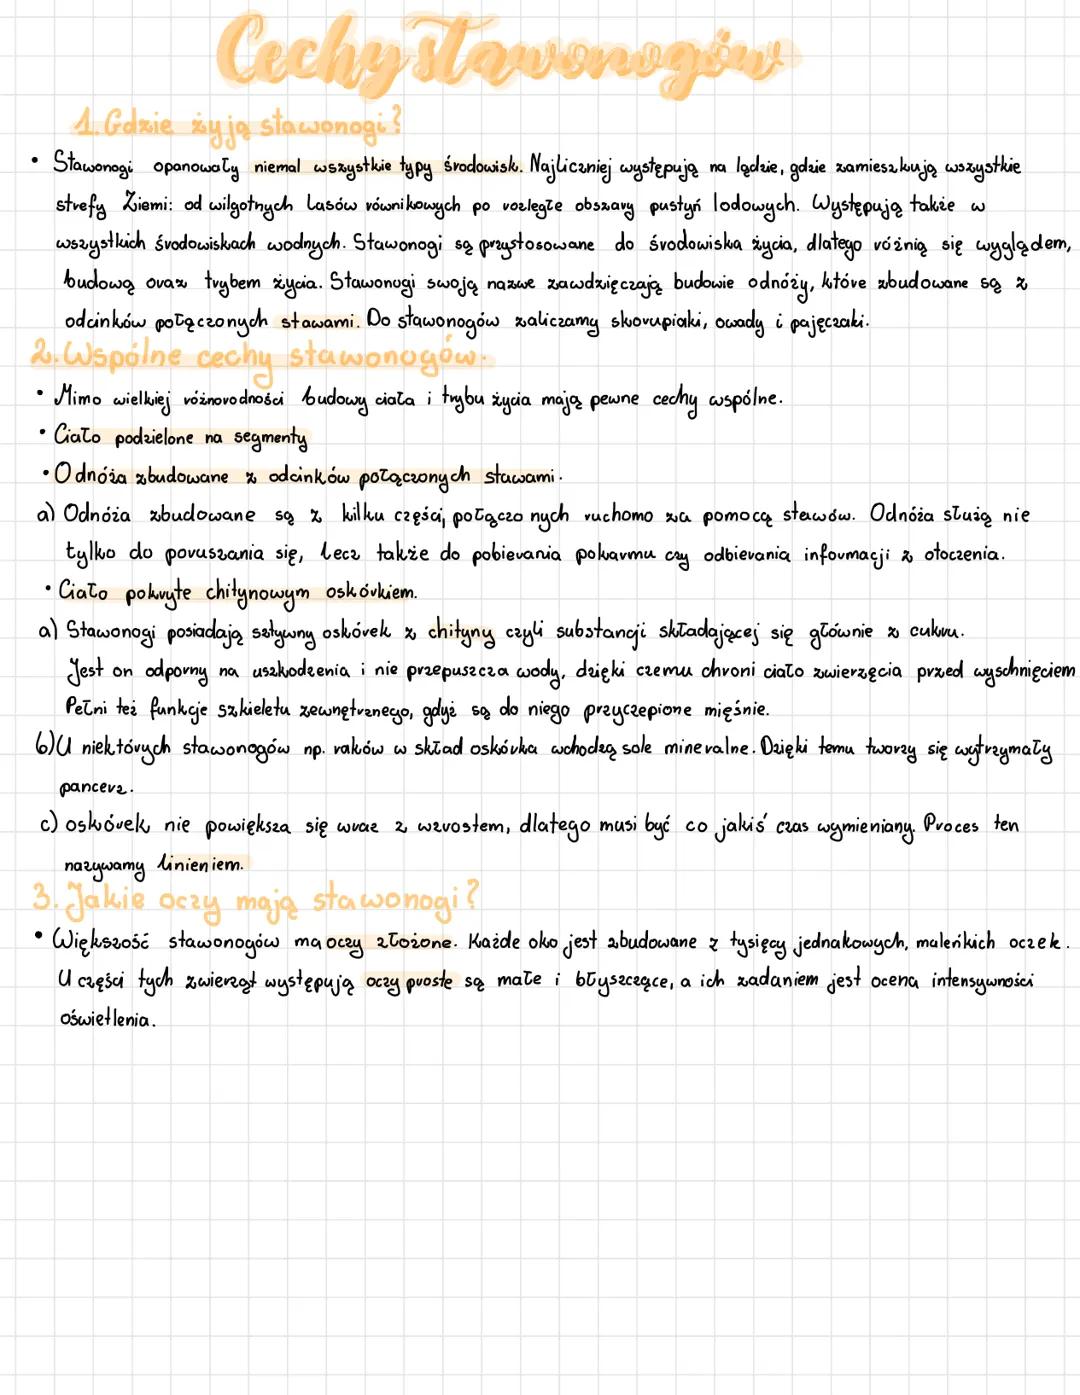 Cechy stawonogów
1. Gdzie żyją stawonogi?
• Stawonogi opanowały niemal wszystkie typy środowisk. Najliczniej występują na lądzie, gdzie zamieszkują wszystkie
strefy Ziemi: od wilgotnych lasów równikowych po rozległe obszary pustyń lodowych. Występują także w
wszystkich środowiskach wodnych. Stawonogi są przystosowane do środowiska życia, dlatego różnią się wyglądem,
budową oraz trybem życia. Stawonogi swoją nazwe zawdzięczają budowie odnóży, które zbudowane są z
odcinków połączonych stawami. Do stawonogów zaliczamy skorupiaki, owady i pajęczaki.
2. Wspólne cechy stawonogów.
• Mimo wielkiej różnorodności budowy ciała i trybu życia mają pewne cechy wspólne.
• Ciało podzielone na segmenty
• Odnóża zbudowane z odcinków połączonych stawami.
a) Odnóża zbudowane są z kilku części, połączonych ruchomo za pomocą stawów. Odnóża służą nie
tylko do poruszania się, lecz także do pobierania pokarmu czy odbierania informacji z otoczenia.
• Ciało pokryte chitynowym oskórkiem.
a) Stawonogi posiadają sztywny oskórek z chityny czyli substancji składającej się głównie z cukru.
Jest on odporny na uszkodzenia i nie przepuszcza wody, dzięki czemu chroni ciało zwierzęcia przed wyschnięciem
Pełni też funkcje szkieletu zewnętrznego, gdyż są do niego przyczepione mięśnie.
b) U niektórych stawonogów np. raków w skład oskórka wchodzą sole mineralne. Dzięki temu tworzy się wytrzymały
pancerz.
c) oskórek nie powiększa się wraz z wzrostem, dlatego musi być co jakiś czas wymieniany. Proces ten
nazywamy linieniem.
3. Jakie oczy mają stawonogi?
• Większość stawonogów ma oczy złożone. Każde oko jest zbudowane z tysięcy jednakowych, maleńkich oczek.
U części tych zwierząt występują oczy proste są małe i błyszczące, a ich zadaniem jest ocena intensywności
oświetlenia.